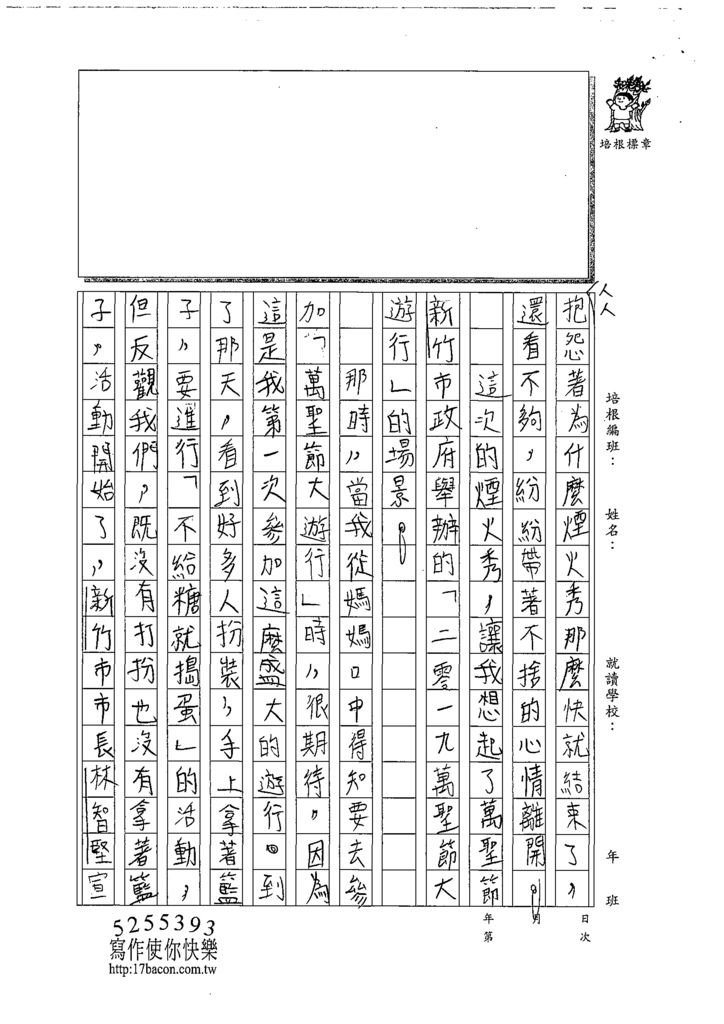 培根標章
人人
抱怨著為什麼煙火秀那麼快就結束了，
還看不夠，紛紛帶著不捨的心情離開。
這次的煙火秀，讓我想起了萬聖節
新竹市政府舉辦的「二零一九萬聖節大
遊行」的場景。
那時，當我從媽媽口中得知要去參
加「萬聖節大遊行」時，很期待，因為
這是我第一次參加這麼盛大的遊行。到
了那天，看到好多人扮裝，手上拿著籃
子，要進行「不給糖就搗蛋」的活動，
但反觀我們，既沒有打扮也沒有拿著籃
子，活動開始了，新竹市市長林智堅宣
培根編班：
姓名：
就讀學校：
年 班
年 月 日
第 次
5255393
寫作使你快樂
http:17bacon.com.tw